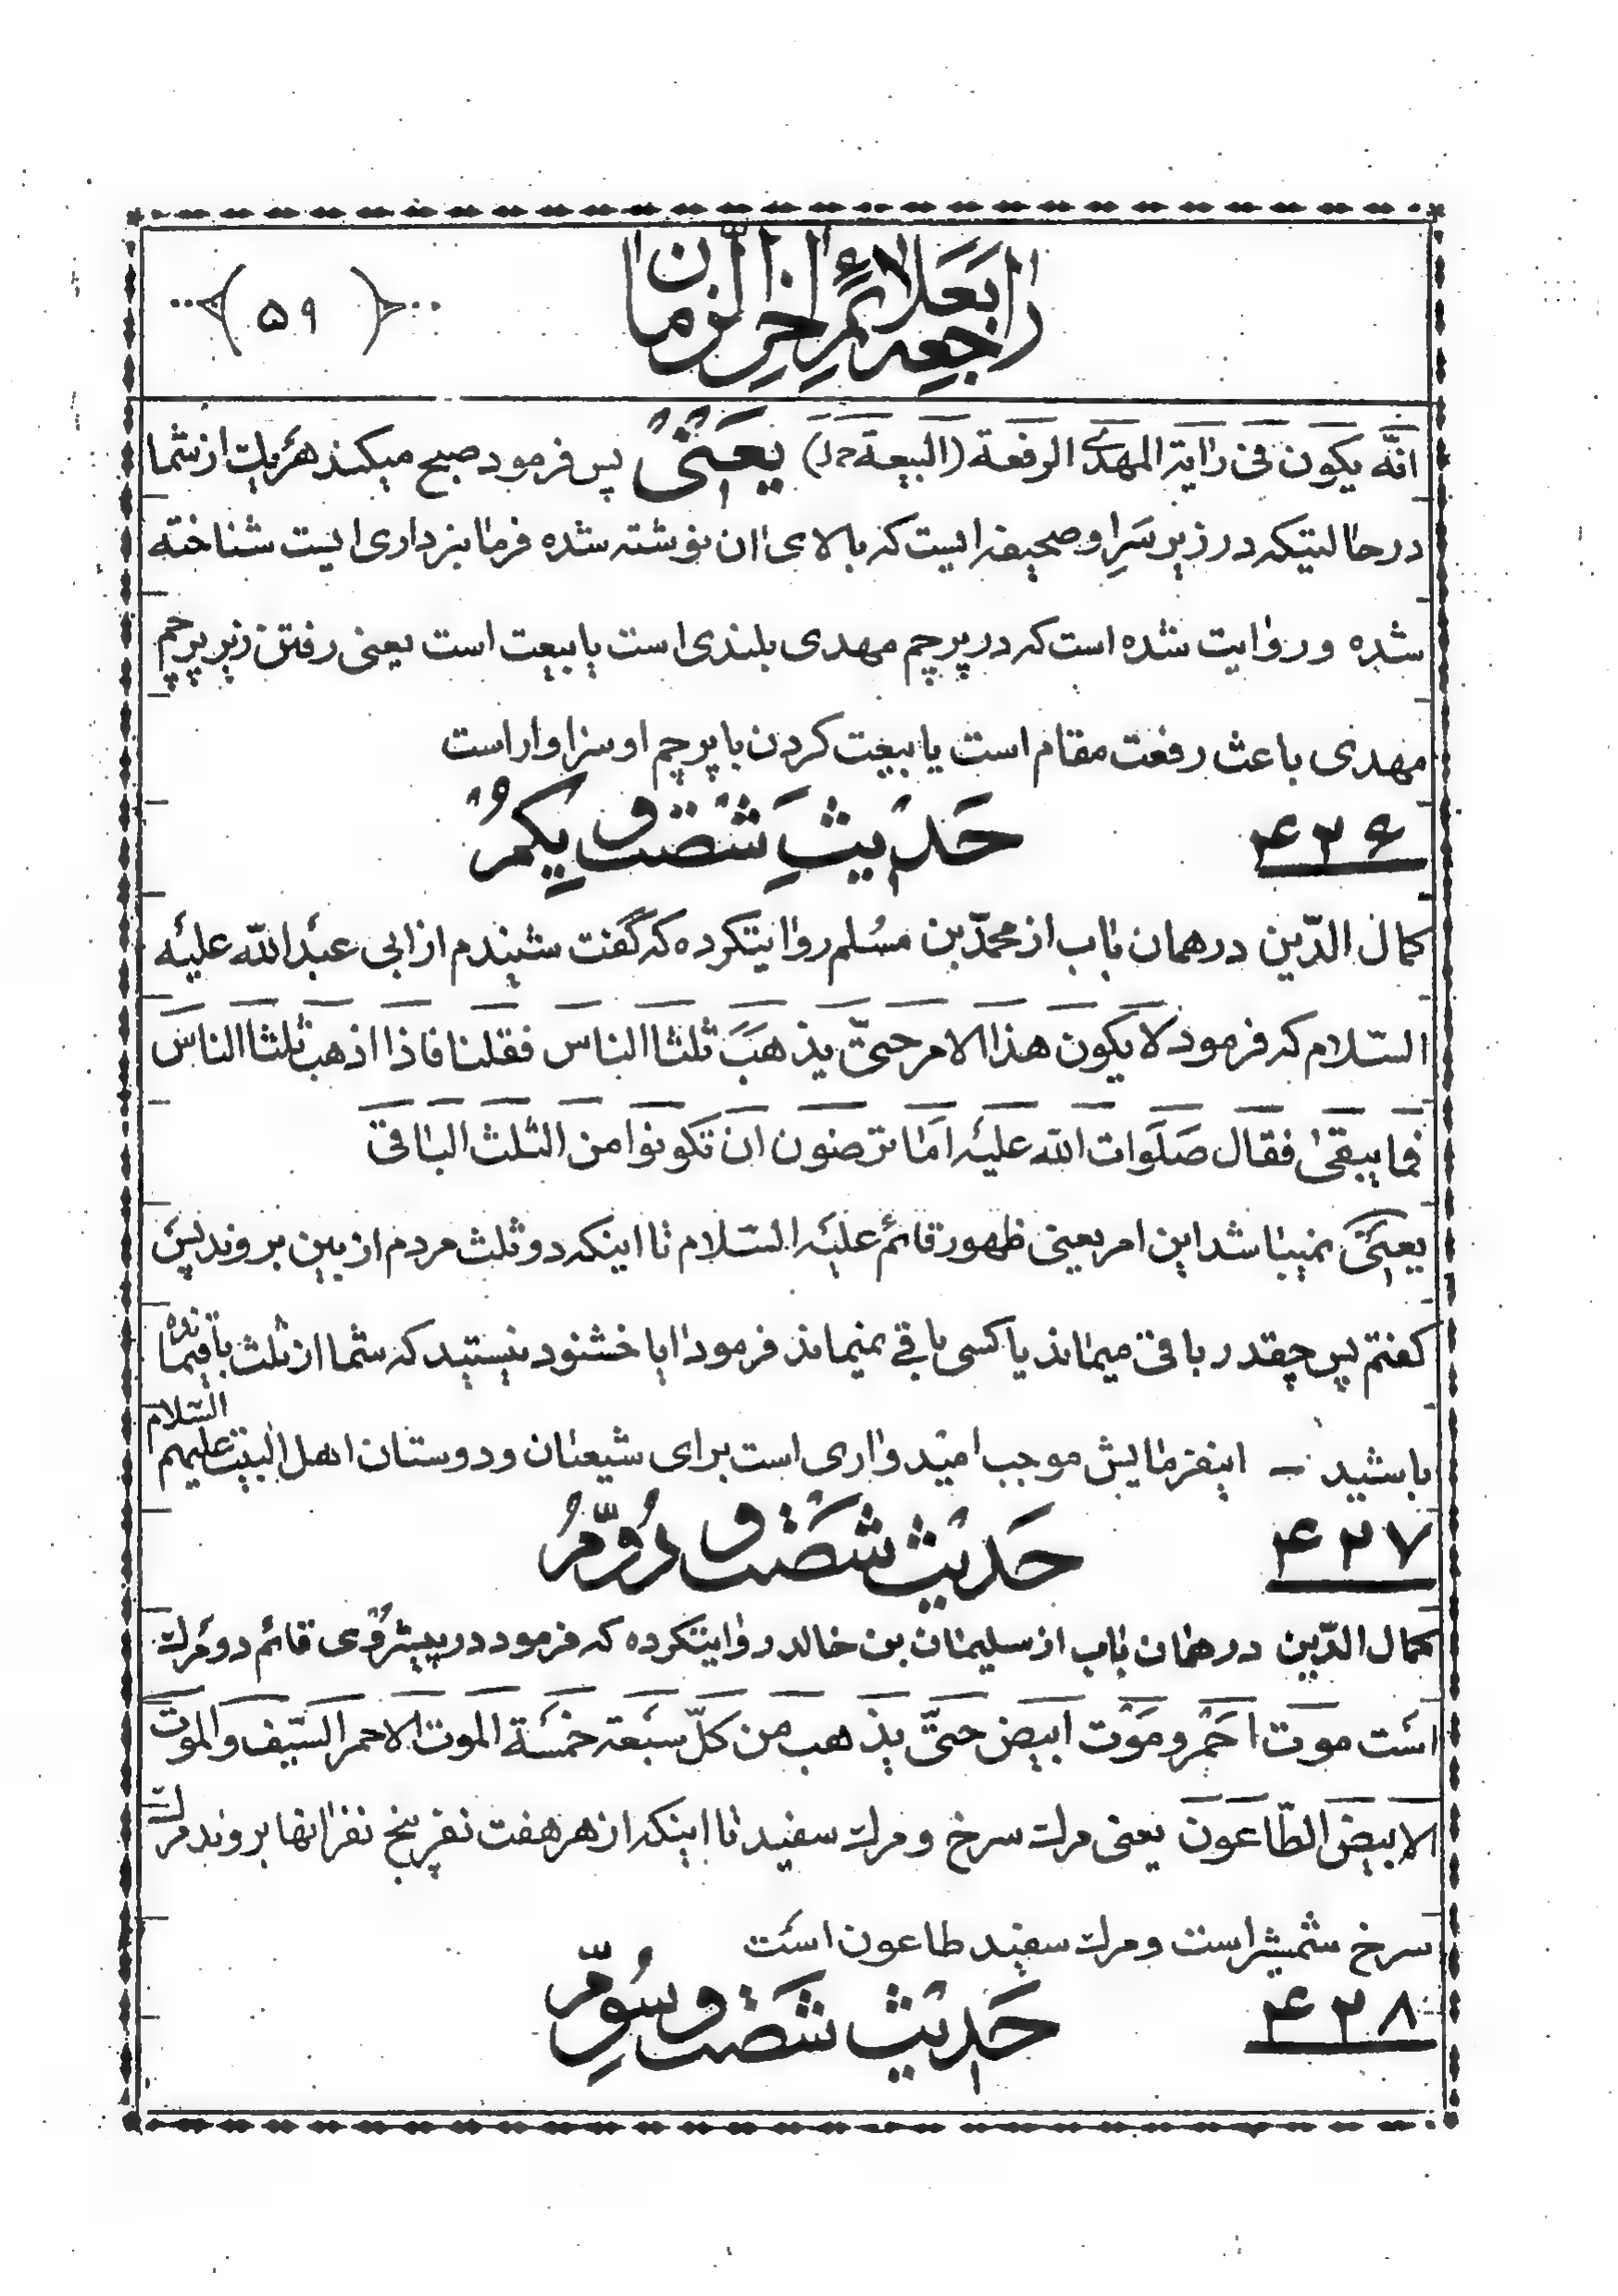 راجعه بعلائم اٰخر الزّمان
﴿ ۵۹ ﴾
انّه یکون فی رٰایة المهدیّ الرفعة (البیعة خ‌ل) یعنی پس فرمود صبح میکند هر یک از شما
در حالتیکه در زیر سر او صحیفه ایست که بالای اٰن نوشته شده فرمانبرداری ایست شناخته
شده و روٰایت شده است که در پرچم مهدی بلندی است یا بیعت است یعنی رفتن زیر پرچم
مهدی باعث رفعت مقام است یا بیعت کردن با پرچم او سزاوار است
۴۲۶ حدیث شصت و یکم
کمال الدّین در همان بٰاب از محمّد بن مسلم روٰایتکرده که گفت شنیدم از ابی عبد اللّه علیه
السّلام که فرمود لا یکون هذا الامر حتّی یذهب ثلثا الناس فقلنا فاذا اذهب ثلثا الناس
فما یبقیٰ فقال صلوات اللّه علیه اما ترضون ان تکونوا من الثلث الباقی
یعنی نمیبٰاشد این امر یعنی ظهور قائم علیه السّلام تا اینکه دو ثلث مردم از بین بروند پس
گفتم پس چقدر باقی میماند یا کسی باقی نمیماند فرمود اٰیا خشنود نیستید که شما از ثلث باقیمانده
باشید – اینفرمایش موجب امیدوٰاری است برای شیعیٰان و دوستان اهل البیت علیهم السّلام
۴۲۷ حدیث شصت و دوّم
کمال الدّین در همان بٰاب از سلیمٰان بن خالد روٰایتکرده که فرمود در پیشروی قائم دو مرک
است موت احمر و موت ابیض حتّی یذهب من کلّ سبعة خمسة الموت الاحمر السّیف و الموت
الابیض الطّاعون یعنی مرک سرخ و مرک سفید تا اینکه از هر هفت نفر پنج نفر اٰنها بروند مرک
سرخ شمشیر است و مرک سفید طاعون است
۴۲۸ حدیث شصت و سوّم